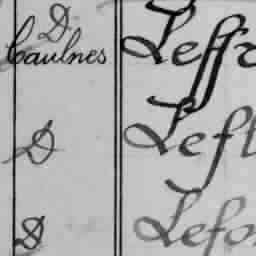 D
Caulnes Leffr
D Left
D Lefo